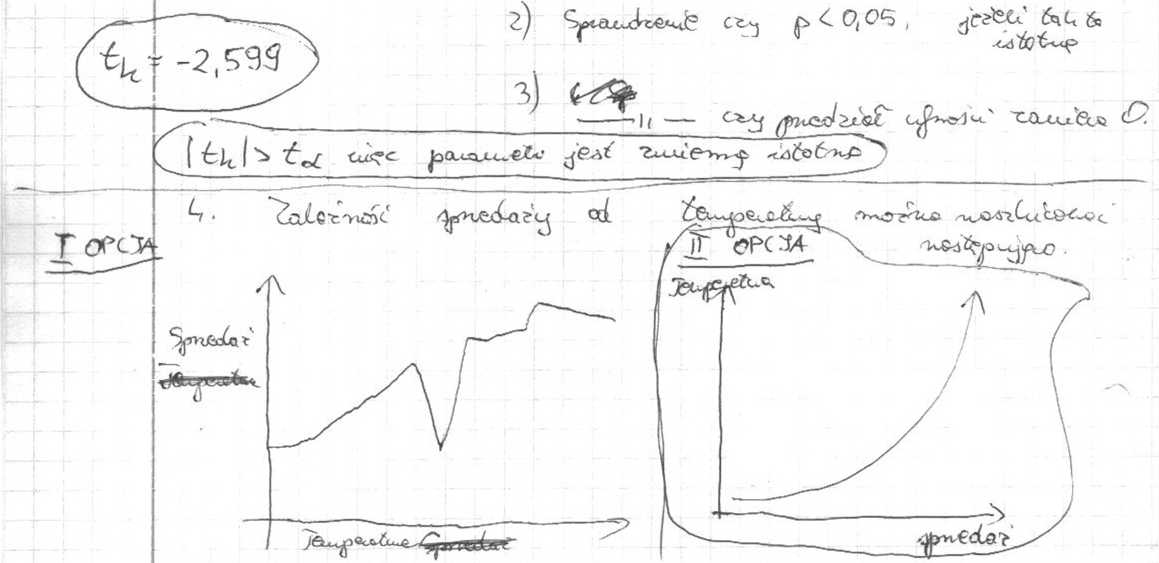 t_h = -2,599
2) Sprawdzenie czy p < 0,05, jeżeli tak to
istotne
3) —||— czy przedział ufności zawiera 0.
|t_h| > t_α więc parametr jest zmienną istotną
4. Zależność sprzedaży od temperatury można naszkicować
następująco.
I OPCJA
Sprzedaż
Temperatura
Temperatura Sprzedaż
II OPCJA
Temperatura
sprzedaż